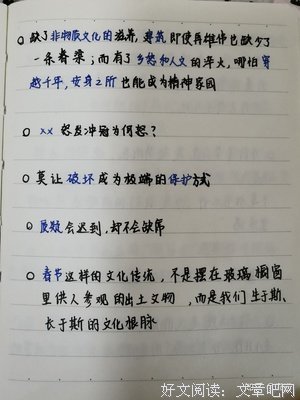 缺了非物质文化的滋养,建筑即使再雄伟也缺少了
一条脊梁;而有了乡愁和人文的薪火,哪怕穿
越千年,安身之所也能成为精神家园
xx 怒发冲冠为何怒?
莫让破坏成为极端的保护方式
质疑会迟到,却不会缺席
春节这样的文化传统,不是摆在玻璃橱窗
里供人参观的出土文物,而是我们生于斯、
长于斯的文化根脉
好文阅读:文章吧网